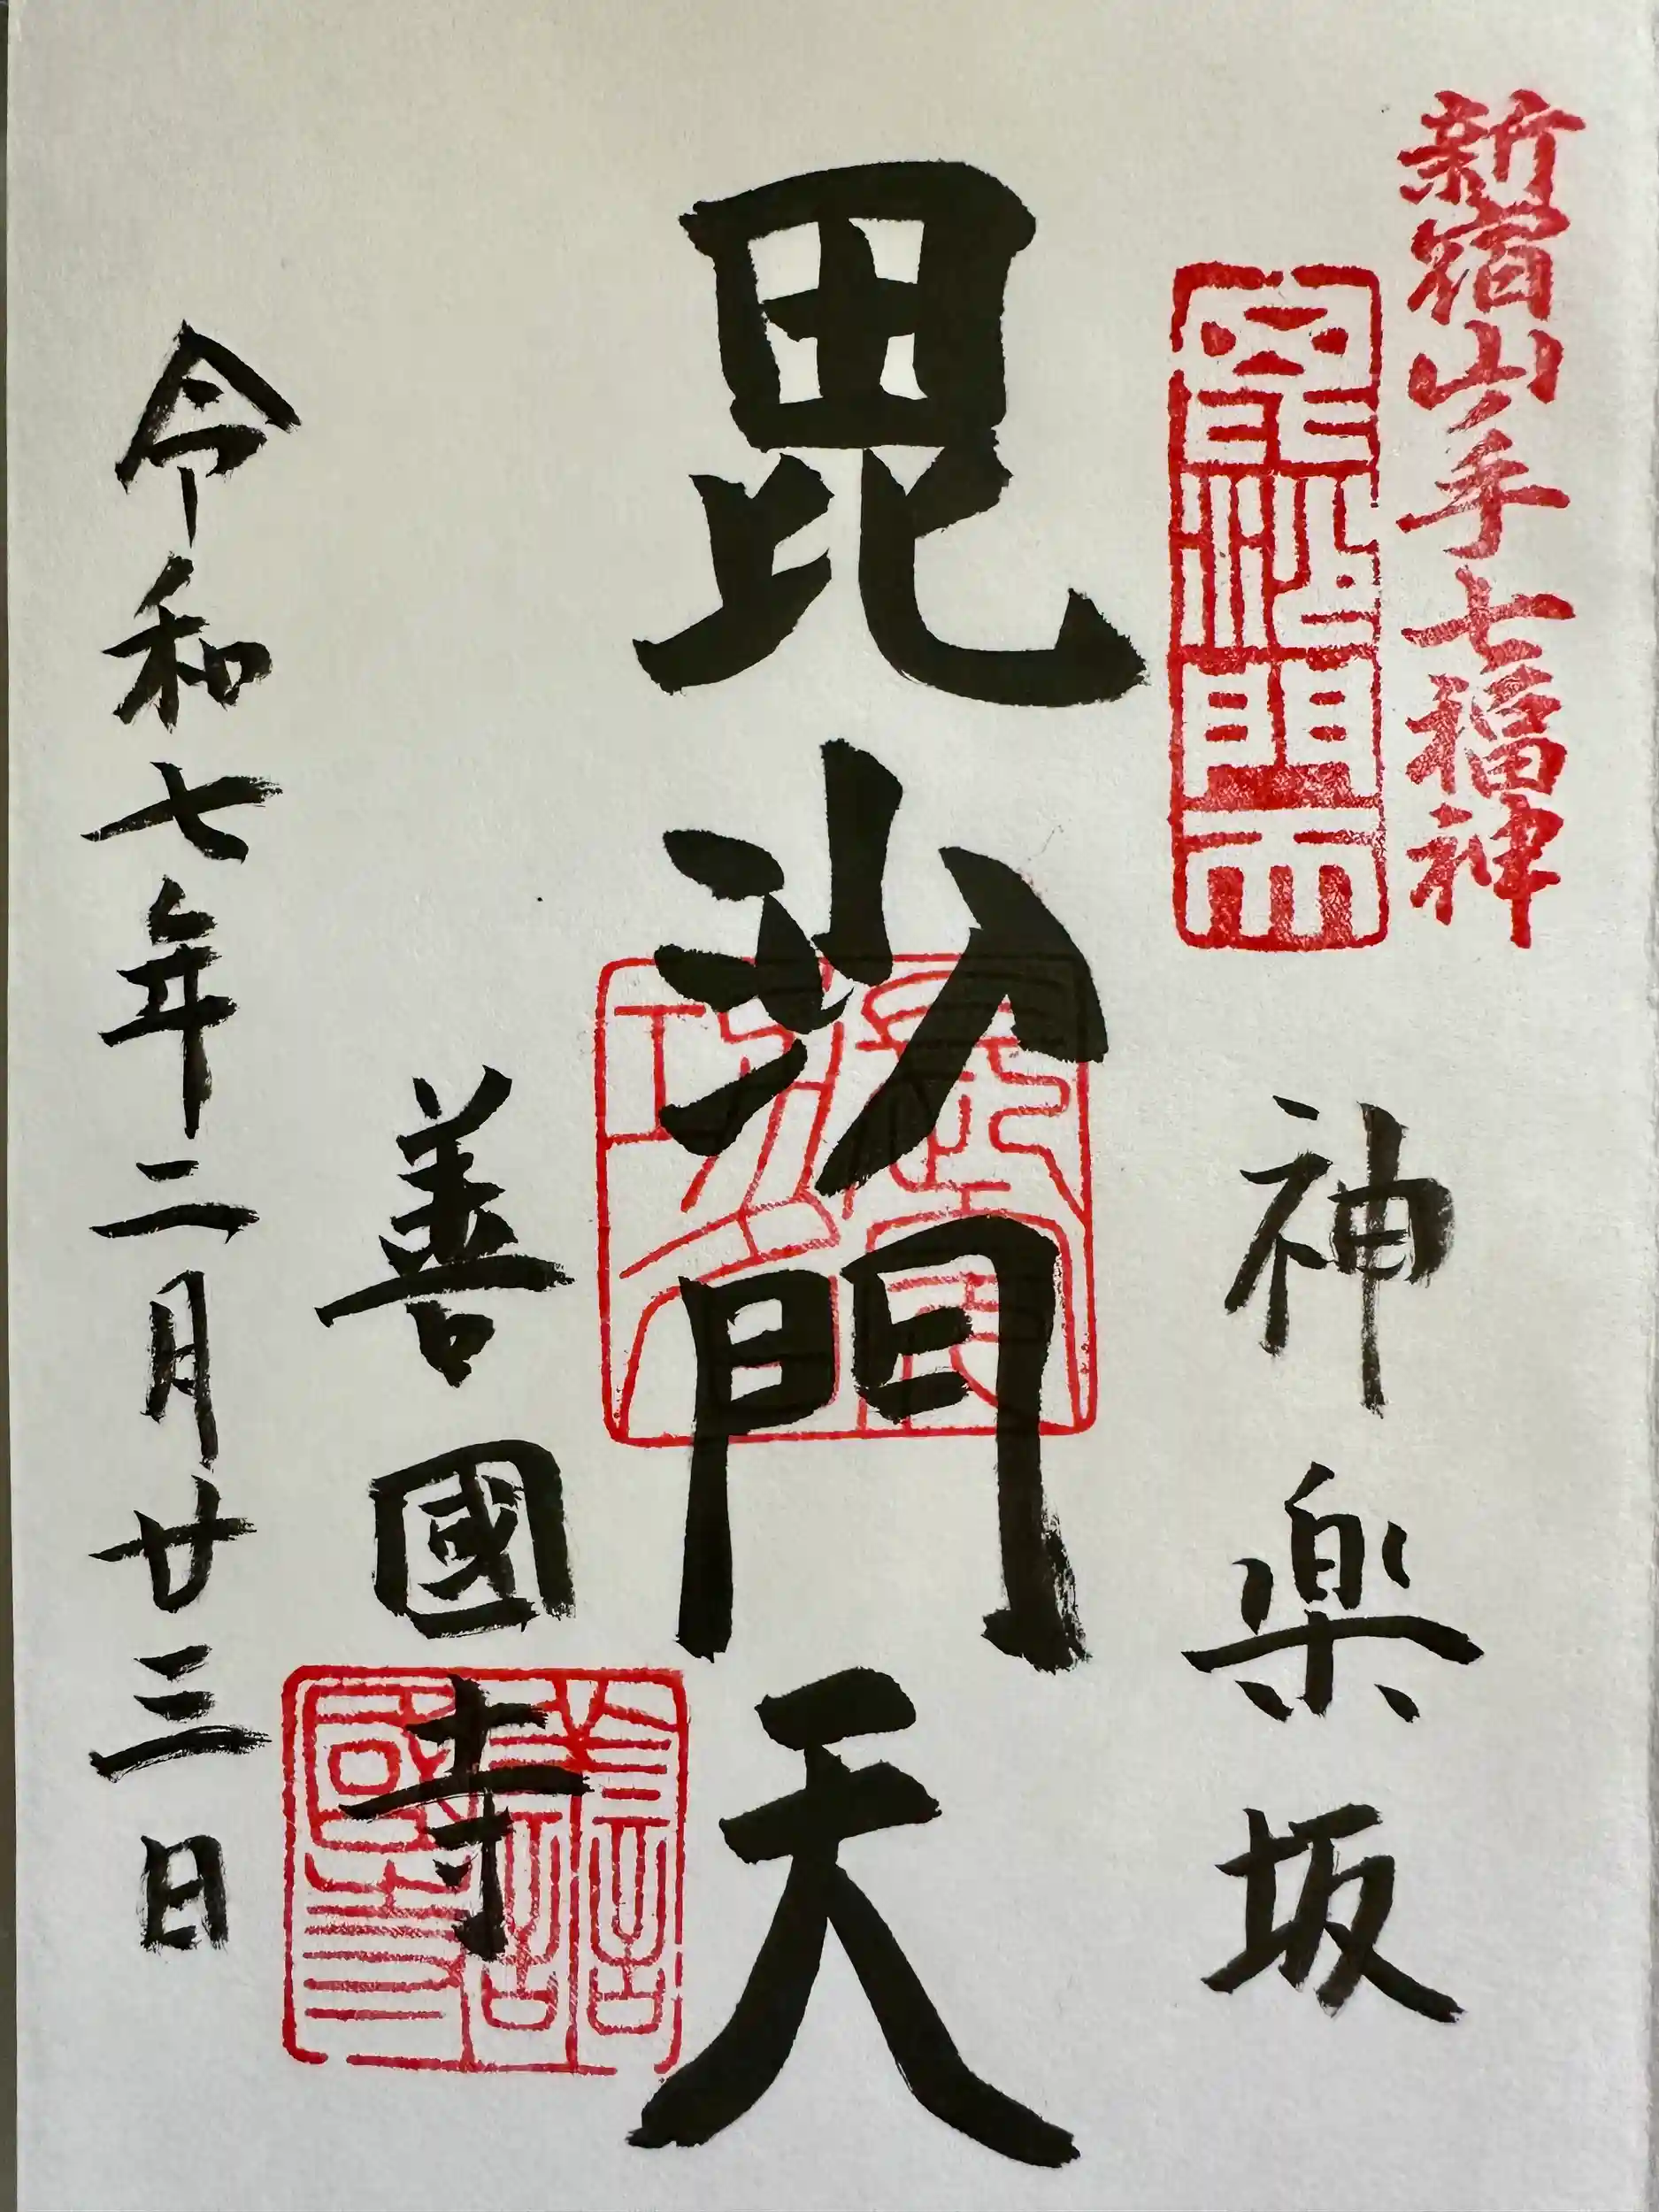 新宿山手七福神
毘沙門天
神楽坂
毘沙門天
善國寺
令和七年二月廿三日